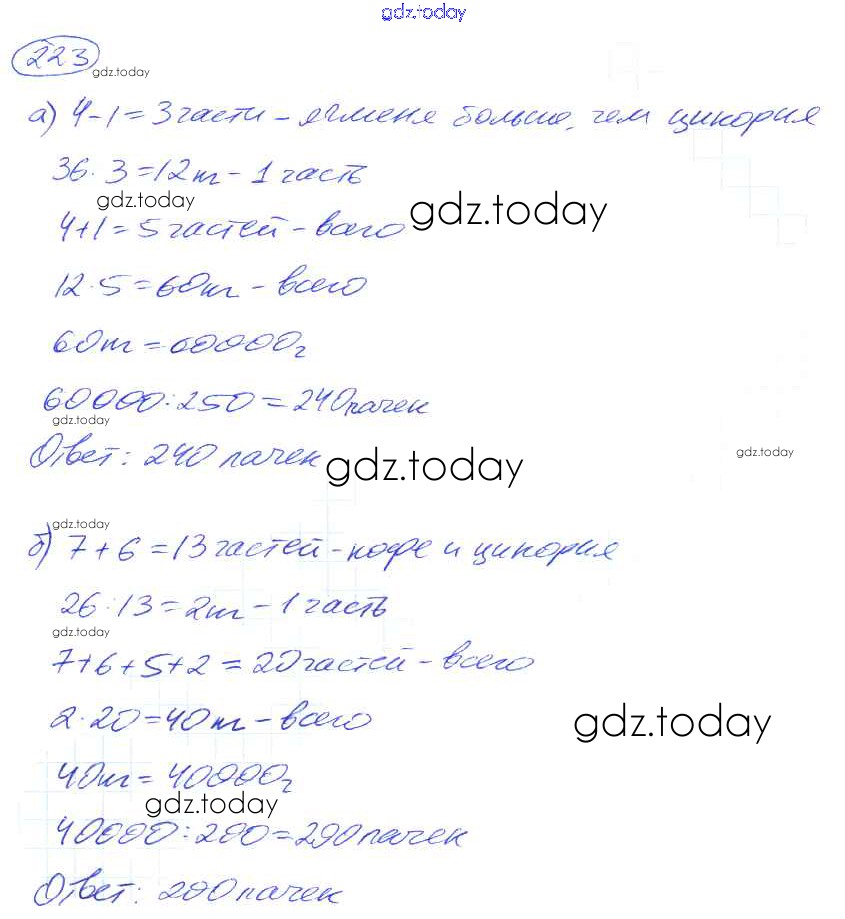 gdz.today
223
gdz.today
а) 4-1=3 части - ячменя больше, чем цикория
36:3=12кг - 1 часть
gdz.today
gdz.today
4+1=5 частей - всего
12·5=60кг - всего
60кг=60000г
60000:250=240 пачек
gdz.today
Ответ: 240 пачек
gdz.today
gdz.today
gdz.today
б) 7+6=13 частей - кофе и цикория
26:13=2кг - 1 часть
gdz.today
7+6+5+2=20 частей - всего
2·20=40кг - всего
gdz.today
40кг=40000г
gdz.today
40000:200=200 пачек
Ответ: 200 пачек